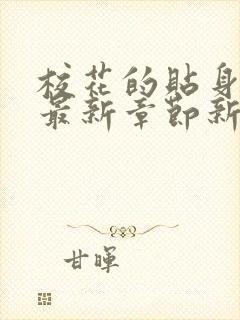 校花的貼身
最新章節新
甘暉